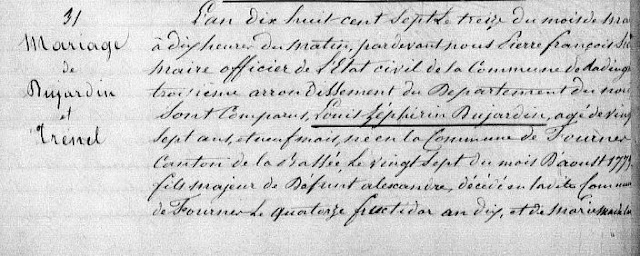 31
Mariage
de
Dujardin
et
Trénel
L'an dix huit cent sept le treize du mois de
à dix heures du matin, pardevant nous Pierre françois
maire officier de l'Etat civil de la Commune de
troisieme arrondissement du Departement du nord
Sont Comparus, Louis Zéphirin Dujardin, agé de vingt
Sept ans, et neuf mois, né en la Commune de Fournes
Canton de la Bassée, le vingt Sept du mois D'aoust
fils majeur de Défunt alexandre, décédé en la dite Commune
de Fournes le quatorze fructidor an dix, et de Marie